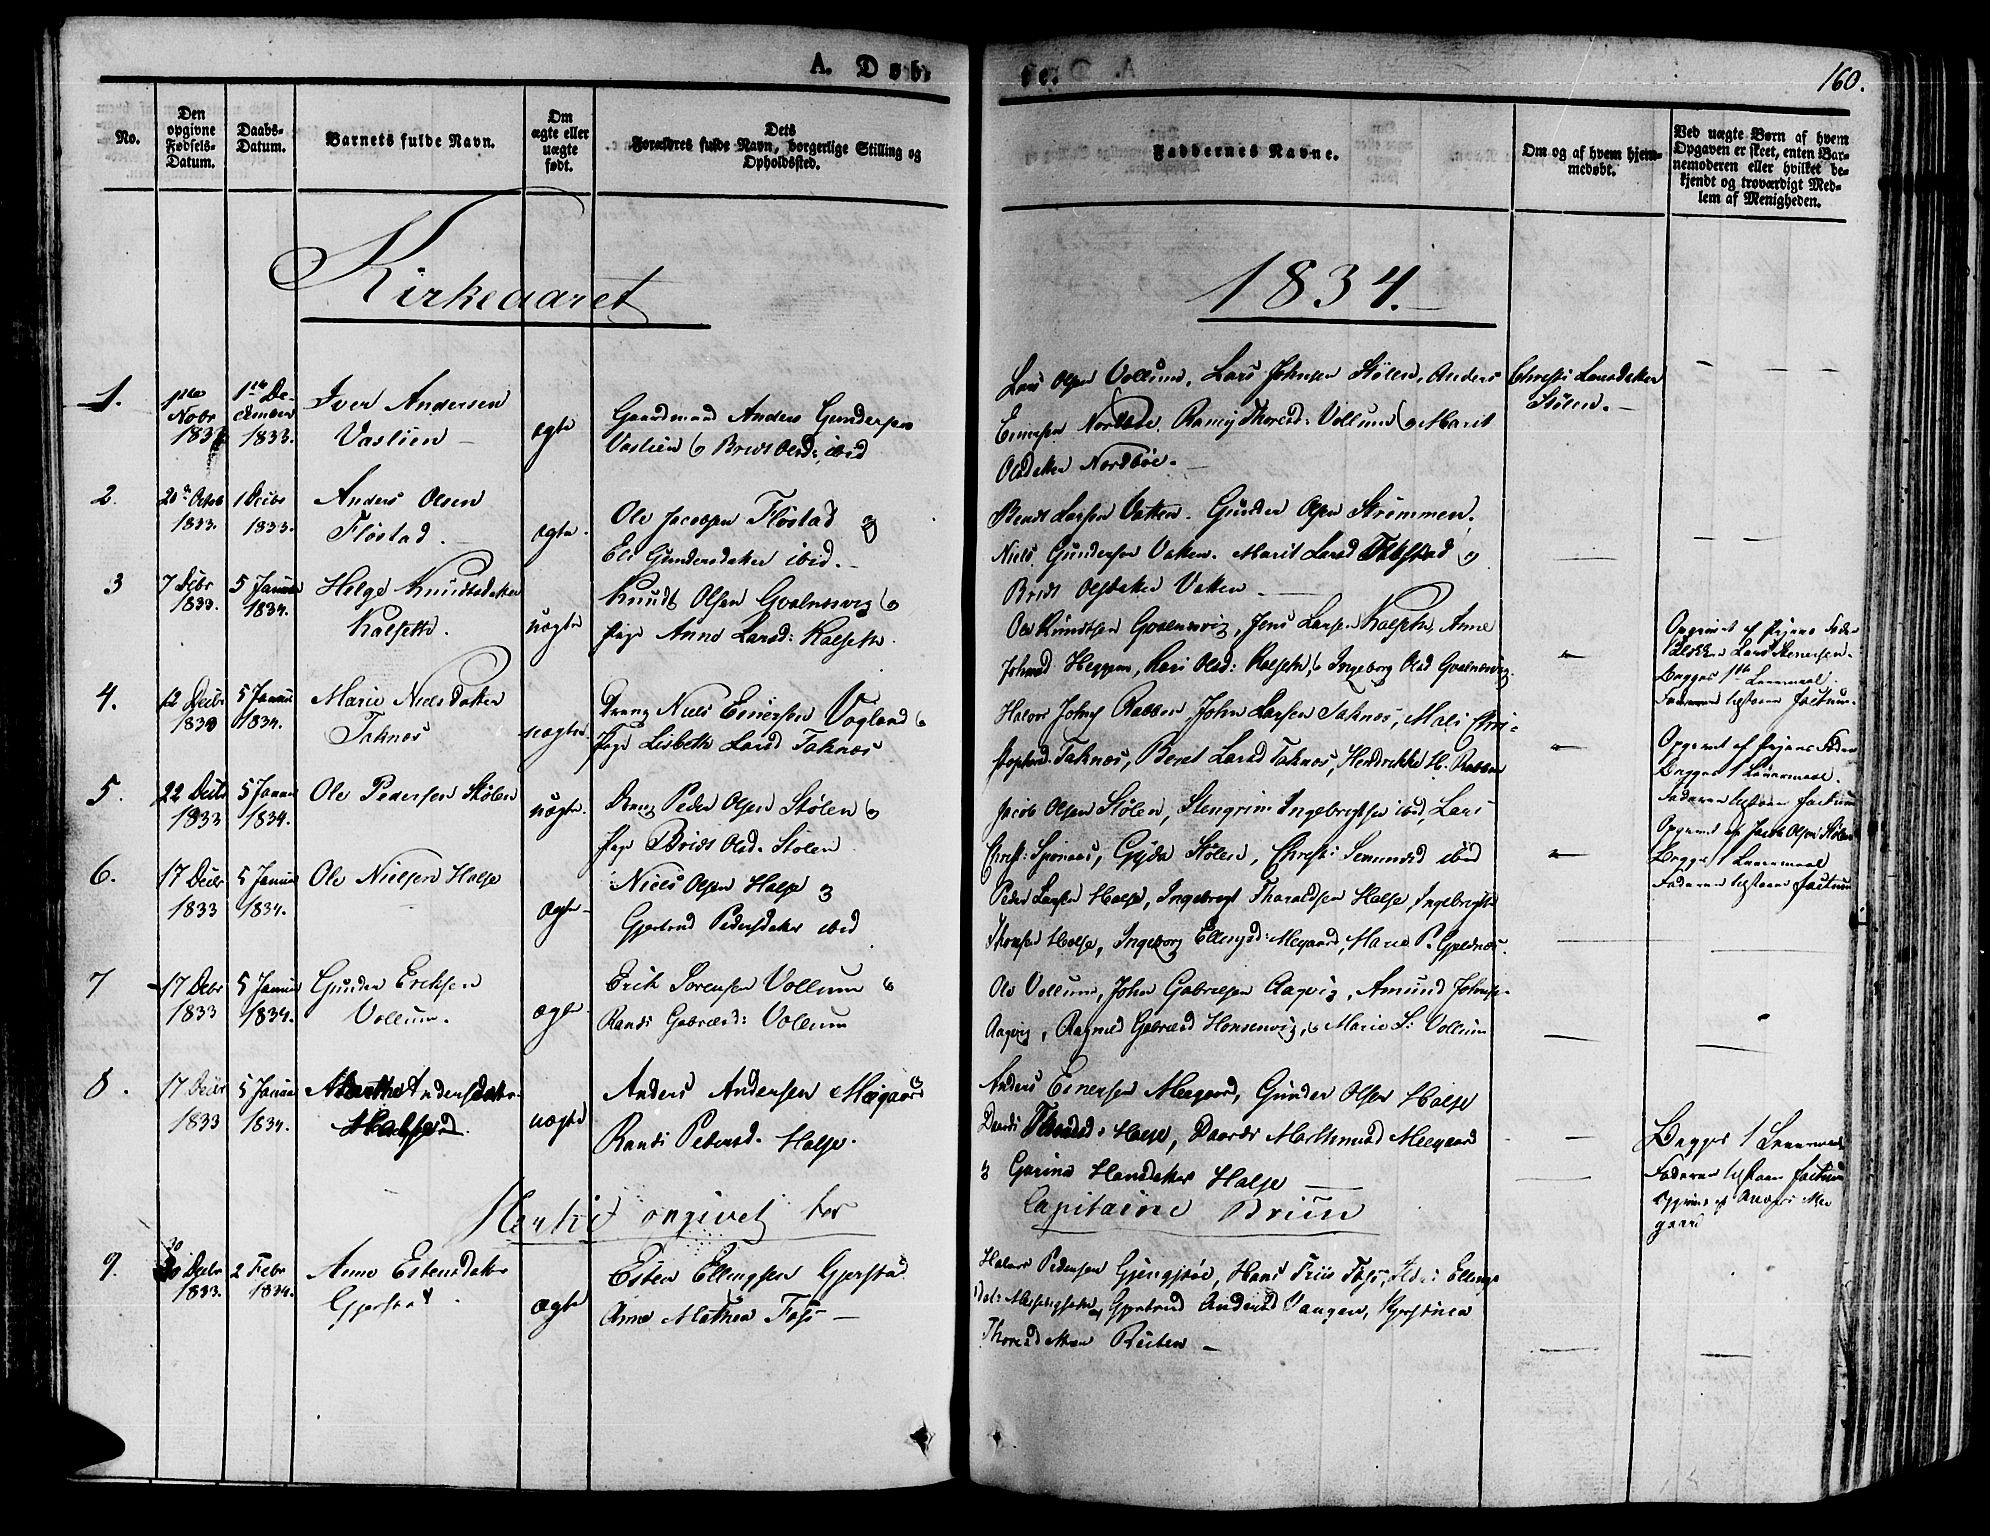 A. Døb-
te.
160.
No.
Den opgivne Fødsels-Datum.
Daabs-Datum.
Barnets fulde Navn.
Om ægte eller uægte født.
Dets Forældres fulde Navn, borgerlige Stilling og Opholdssted.
Faddernes Navne.
Om og af hvem hjemmedøbt.
Ved uægte Børn af hvem Opgaven er skeet, enten Barnemoderen eller hvilket bekjendt og troværdigt Medlem af Menigheden.
Kirkeaaret
1834.
1.
Nobr
1833
1ste De-
cember
1833.
Iver Andersen
Vaslien
ægte
Gaardmand Anders Gundersen
Vaslien og Brit Olsd: ibid
Lars Olsen Vollum, Lars Johnsen Stølen, Anders
Einersen Nordbøe, Thoresd: Vollum og Marit
Olsdatter Nordbøe.
Christi Larsdatter
Stølen.
2.
20 Octob
1833.
1 Decbr
1833.
Anders Olsen
Fløstad.
ægte.
Ole Jacobsen Fløstad og
Eli Gundersdatter ibid.
Bendt Larsen Vatten. Gunder Olsen Strømmen.
Niels Gundersen Vatten. Marit Larsd Fløstad og
Brit Olsdatter Vatten
3
7 Dcbr
1833.
5 Januar
1834.
Helge Knudtsdatter
Kalseth.
uægte
Knudt Olsen Gvalnesvig og
Pige Anne Larsd: Kalseth.
Ole Knudtsen Gvalnesvig, Jens Larsen Kalseth, Anne
Johnsd Heggem, Kari Olsd: Kalseth og Ingeborg Olsd Gvalnesvig.
Opgivet af Pigens Fader
Lars Stenersen.
Begges 1ste Leiermaal.
Faderen tilstaaer Factum.
4.
12 Decbr
1833
5 Januar
1834.
Marie Nielsdatter
Taknes
uægte.
Dreng Niels Einersen Vogland og
Pige Lisbeth Larsd Taknes
Halvor Johns Rabben, John Larsen Taknes, Mali Chri-
stophersd Taknes, Beret Larsd Taknes, Hendrikke H. Rabben
Opgivet af Pigens Fader
Begges 1 Leiermaal.
Faderen tilstaaer Factum
5.
22 Decbr
1833
5 Januar
1834.
Ole Pedersen Stølen
uægte.
Dreng Peder Olsen Stølen og
Pige Brit Olsd. Stølen
Jacob Olsen Stølen, Stengrim Ingebrigtsen ibid, Lars
Christ: Spjones, Gjøa Stølen, Christi Semundsd ibid
Opgivet af Jacob Olsen Stølen
Begges 1 Leiermaal
Faderen tilstaaer Factum
6.
17 Decbr
1833
5 Januar
1834.
Ole Nielsen Halse
ægte
Niels Olsen Halse og
Gjertrud Pedersdatter ibid
Peder Larsen Halse, Ingebrigt Tharaldsen Halse, Ingebrigt
Thomsen Halse, Ingeborg Ellingsd: Megaard, Marie P. Gjeldnes.
7
17 Decbr
1833
5 Januar
1834.
Gunder Eriksen
Vollum.
ægte.
Erik Sørensen Vollum og
Randi Gabrielsd: Vollum
Ole Vollum, John Gabrielsen Aagvig, Amund Johnsen
Aagvig, Ragnild Gabrielsd Honsenvig, og Marie S: Vollum
8.
17 Decbr
1833
5 Januar
1834.
Marthe Andersdatter
Halse
uægte
Anders Andersen Megaard og
Randi Pedersd. Halse.
Anders Einersen Megaard, Gunder Olsen Halse
Halse, Mortensd Megaard
og Gurine Hansdatter Halse
Begges 1 Leiermaal
Faderen tilstaaer Factum
Opgivet af Anders Me-
gaard
Marthe opgivet for
Capitaine Brün
9.
30
Decbr
1833.
2 Febr
1834.
Anne Estensdatter
Gjerstad.
ægte
Esten Ellingsen Gjerstad
Anne Mathea Foss
Halvor Pedersen Gjengstøe, Hans Friis Foss, Ellings-
Gjertrud Andersd Vaagen, Kjerstina
Thoresdatter Reiten